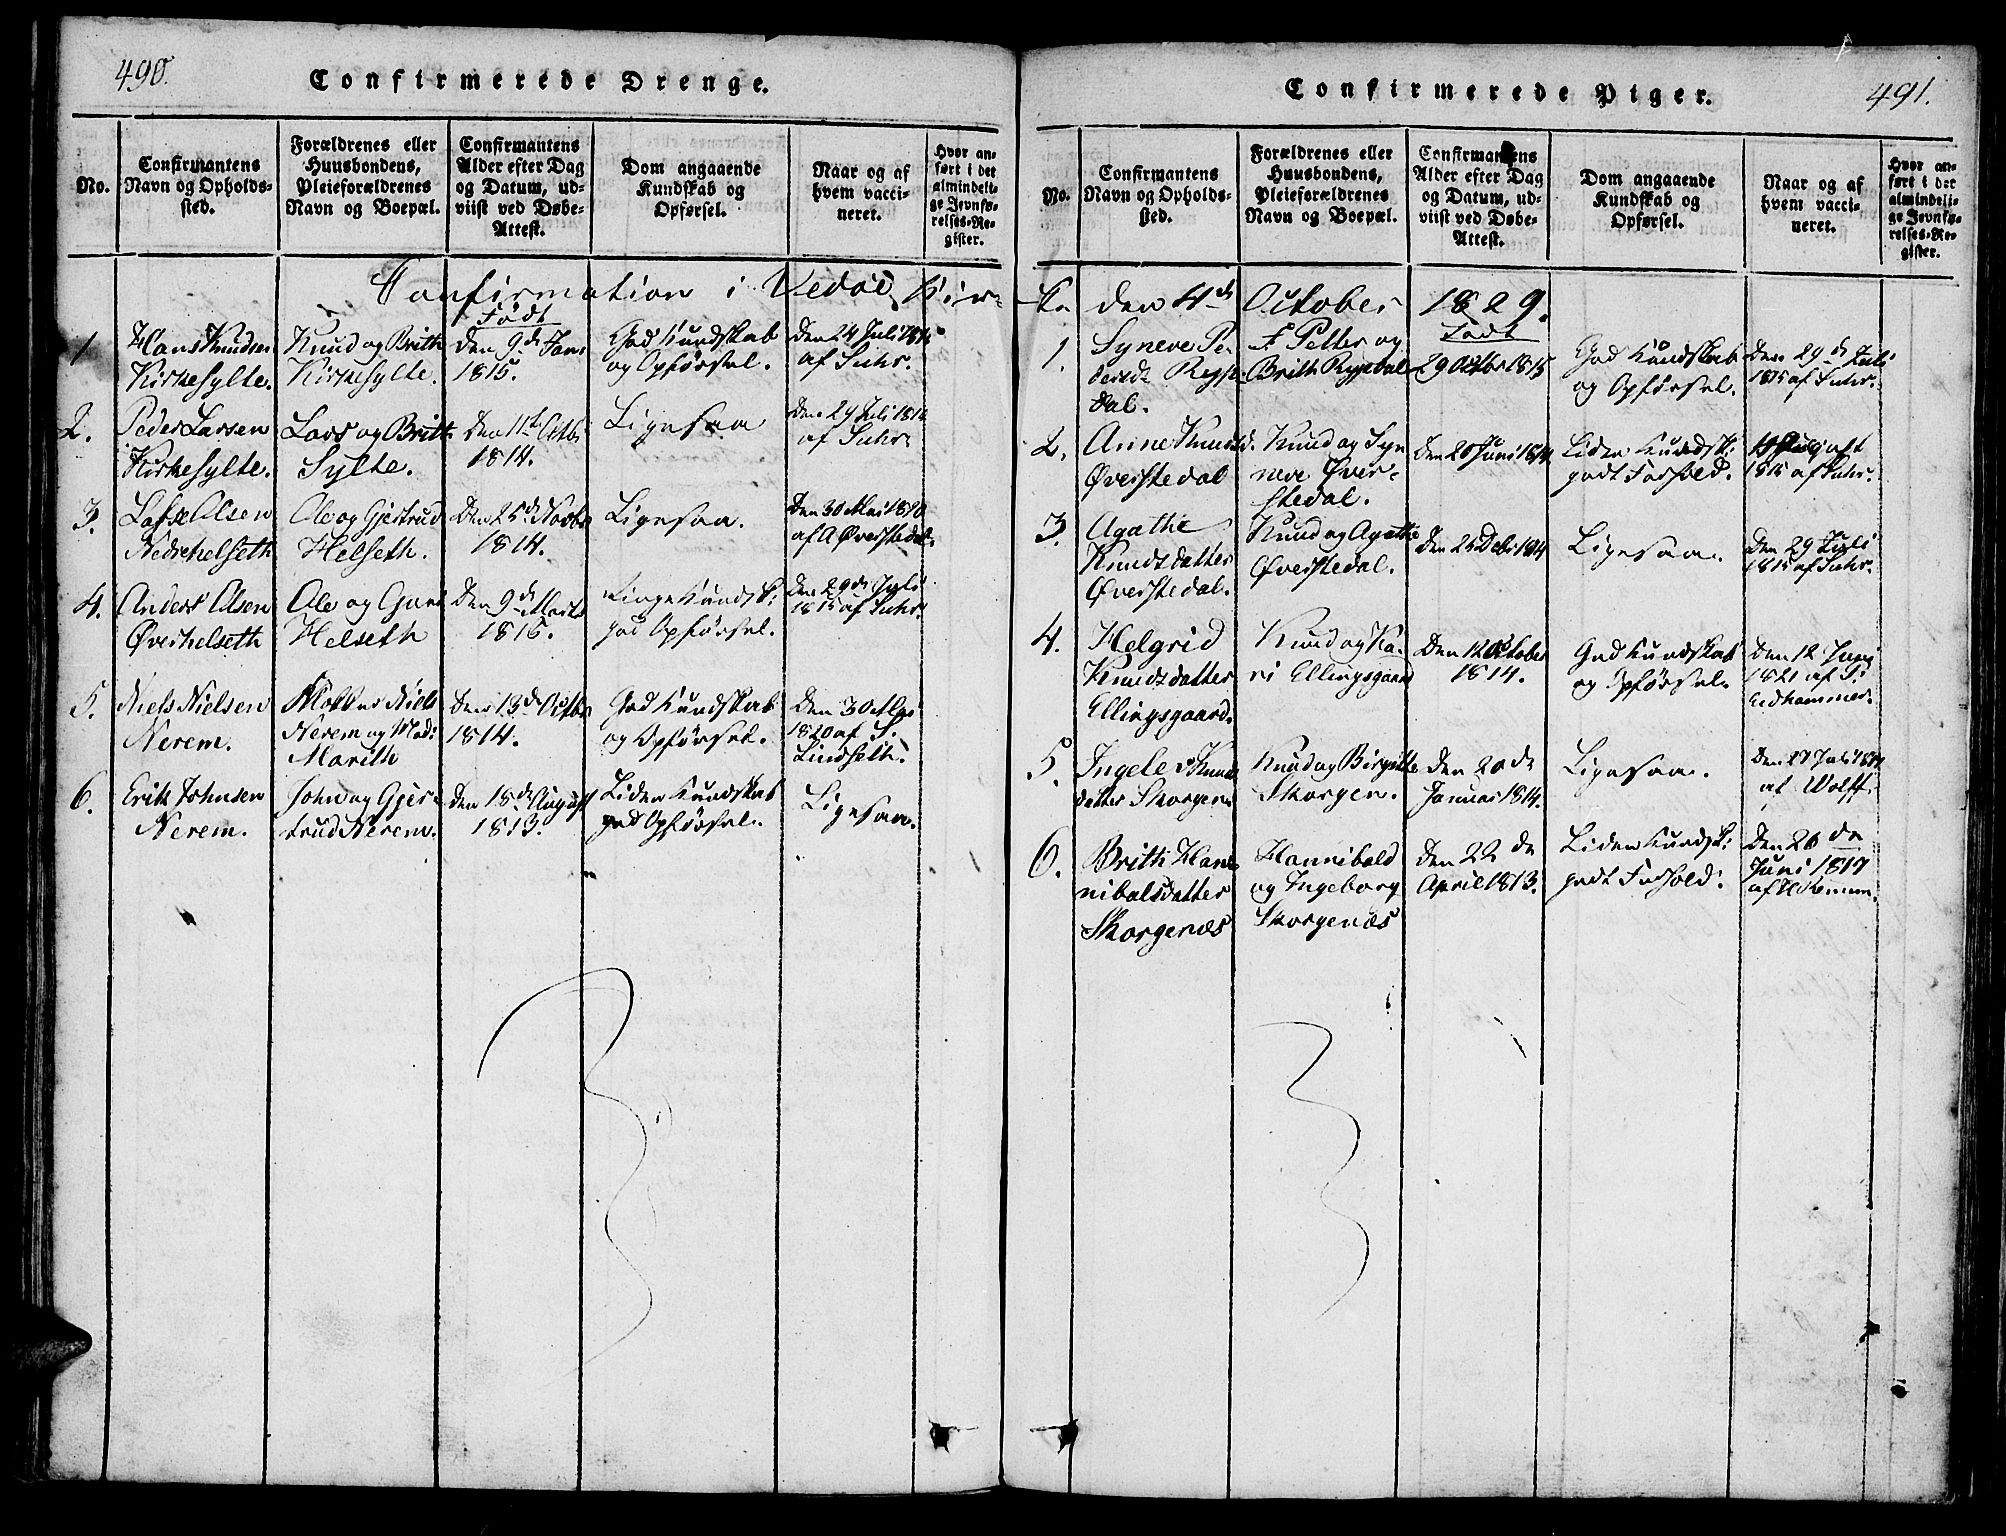 490.
Confirmerede Drenge.
No.
Confirmantens
Navn og Opholds-
sted.
Forældrenes eller
Huusbondens,
Pleieforældrenes
Navn og Boepæl.
Confirmantens
Alder efter Dag
og Datum, ud-
viist ved Døbe-
Attest.
Dom angaaende
Kundskab og
Opførsel.
Naar og af
hvem vacci-
neret.
Hvor an-
ført i det
almindeli-
ge Jevnfø-
relses-Re-
gister.
Confirmation i Vedøe Kir-
Født
1
Hans Knudsen
Kirkesylte.
Knud og Brith
Kirkesylte.
Den 9de Jan:
1815.
God Kundskab
og Opførsel.
Den 24 Juli
af Suhr.
2.
Peder Larsen
Kirkesylte.
Lars og Brith
Sylte.
Den 11te Octb:
1814.
Ligesaa
Den 29 Juli
af Suhr
3.
Olsen
Nedrehelseth
Ole og Gjertrud
Helseth.
Den 25de Novbr
1814.
Ligesaa.
Den 30 Mai
af A Øverstedal.
4.
Anders Olsen
Øverhelseth
Ole og Guri
Helseth
Den 9de Marts
1815.
Ringe Kundsk:
god Opførsel.
Den 29de Juli
1815 af Suhr
5.
Niels Nielsen
Nerem.
Niels
Nerem og Mad:
Marith
Den 13de Octbr
1814.
God Kundskab
og Opførsel.
Den 30 Mai
1820 af S.
Lindseth.
6.
Erik Johnsen
Nerem.
John og Gjer-
trud Nerem.
Den 18de August
1813.
Liden Kundskab
god Opførsel.
Ligesaa.
491.
Confirmerede Piger.
No.
Confirmantens
Navn og Opholds-
sted.
Forældrenes eller
Huusbondens,
Pleieforældrenes
Navn og Boepæl.
Confirmantens
Alder efter Dag
og Datum, ud-
viist ved Døbe-
Attest.
Dom angaaende
Kundskab og
Opførsel.
Naar og af
hvem vacci-
neret.
Hvor an-
ført i det
almindeli-
ge Jevnfø-
relses-Re-
gister.
ke den 4de October 1829.
Født
1.
Syneve Pe-
dersd:
dal.
Petter og
Brith
29 Octbr 1815
God Kundskab
og Opførsel.
Den 29de Juli
1815 af Suhr.
2.
Anne Knudsd.
Øverstedal
Knud og Syn
neve Øver-
stedal.
Den 20 Juni 1814
Liden Kundsk:
godt Forhold.
1815 af Suhr.
3.
Agathe
Knudsdatter
Øverstedal.
Knud og Agathe
Øverstedal.
Den Debr 1814
Ligesaa.
Den 29 Juli
1815 af Suhr.
4.
Helgrid
Knudsdatter
Ellingsgaard.
Knud og Ka-
ri Ellingsgaard
Den 12 October
1814.
God Kundskab
og Opførsel.
Den 12 Juni
1821 af S.
Eidhammer.
5.
Knuds
datter Skorgen
Knud og Birgitte
Skorgen.
Den 20de
Januar 1814.
Ligesaa.
Den 27 Juli
af Wolff.
6.
Brith Han-
nibalsdatter
Skorgenæs
Hannibald
og Ingeborg
Skorgenæs
Den 22de
April 1813.
Liden Kundsk:
godt Forhold.
Den 26de
Juni 1817